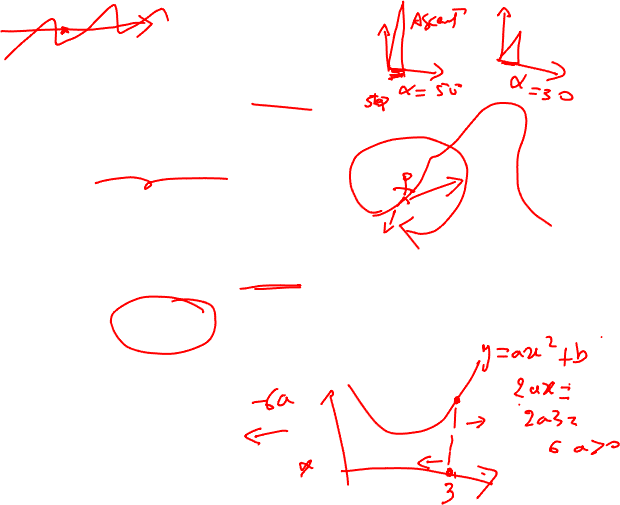 Ascent
step α = 50
α = 30
P
y = ax² + b
-6a
2ax =
2a3 =
6 a>0
x
3